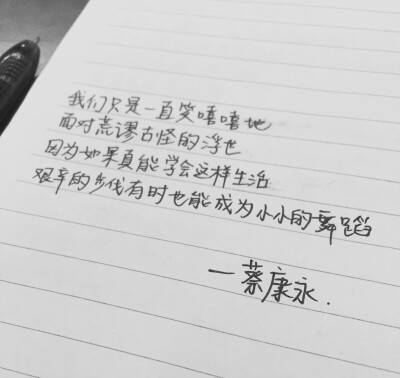 我们只是一直笑嘻嘻地
面对荒谬古怪的浮世
因为如果真能学会这样生活
艰辛的步伐有时也能成为小小的舞蹈
—蔡康永.